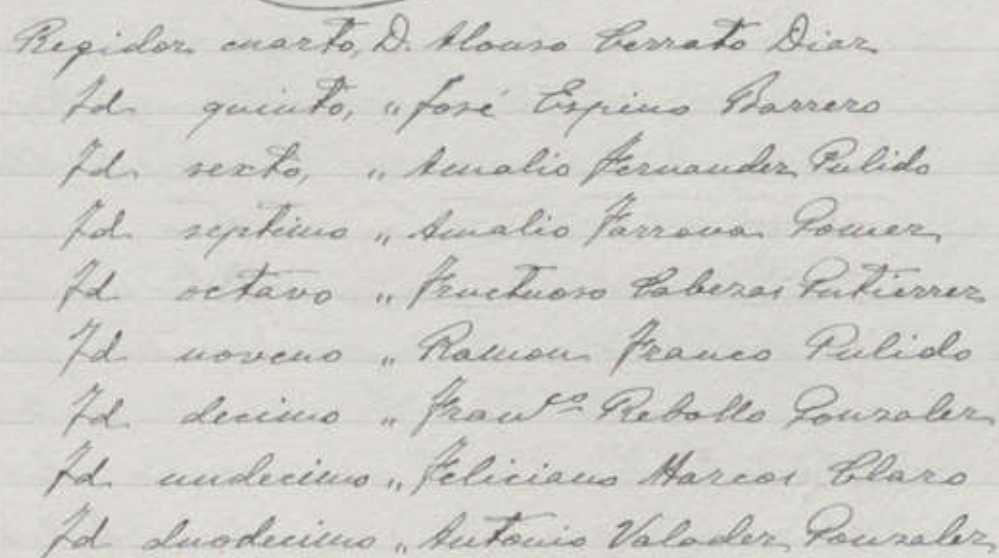 Regidor cuarto, D. Alonso Cerrato Diaz
Id. quinto, " José Espino Barrero
Id. sexto, " Amalio Fernandez Pulido
Id. septimo " Amalio Farrona Gomez
Id. octavo " Fructuoso Cabezas Gutierrez
Id. noveno " Ramon Franco Pulido
Id. decimo " Franco Rebollo Gonzalez
Id. undecimo " Feliciano Marcos Claro
Id. duodecimo " Antonio Valadez Gonzalez